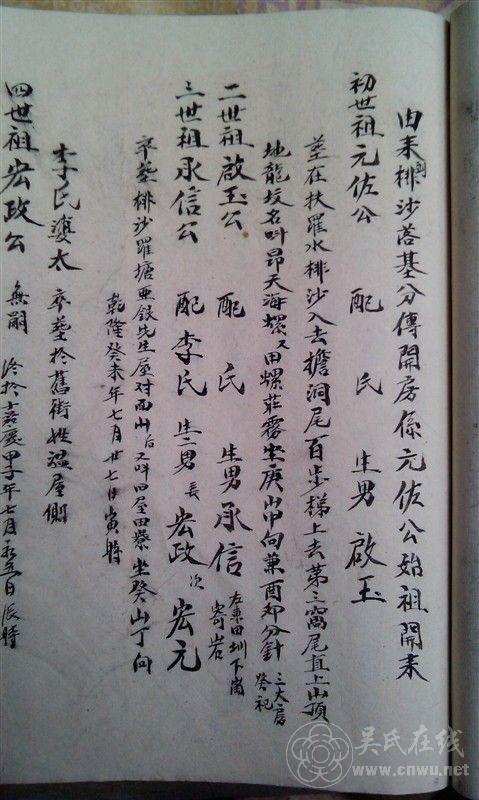 由來到排沙荅基分傳開房係元佐公始祖開來
初世祖元佐公 配 氏 生男 啟玉
塟在扶羅水排沙入去擔洞尾百步梯上去第三窩尾直上山頂
地龍坟名叫昂天海螺又田螺莊霧坐庚山甲向兼酉卯分針 三大房
癸祀
二世祖啟玉公 配 氏 生男承信 左東田圳下崗
寄岩
三世祖承信公 配李氏 生二男 長 宏政 次 宏元
卒塟排沙羅塘亜銀先生屋对面山后又叫田屋田寮坐癸山丁向
乾隆癸未年七月廿七日寅時
李氏婆太 卒塟扵舊街姓温屋側
四世祖宏政公 無嗣 扵嘉慶甲子年七月 五日辰時
吴氏在线
www.cnwu.net